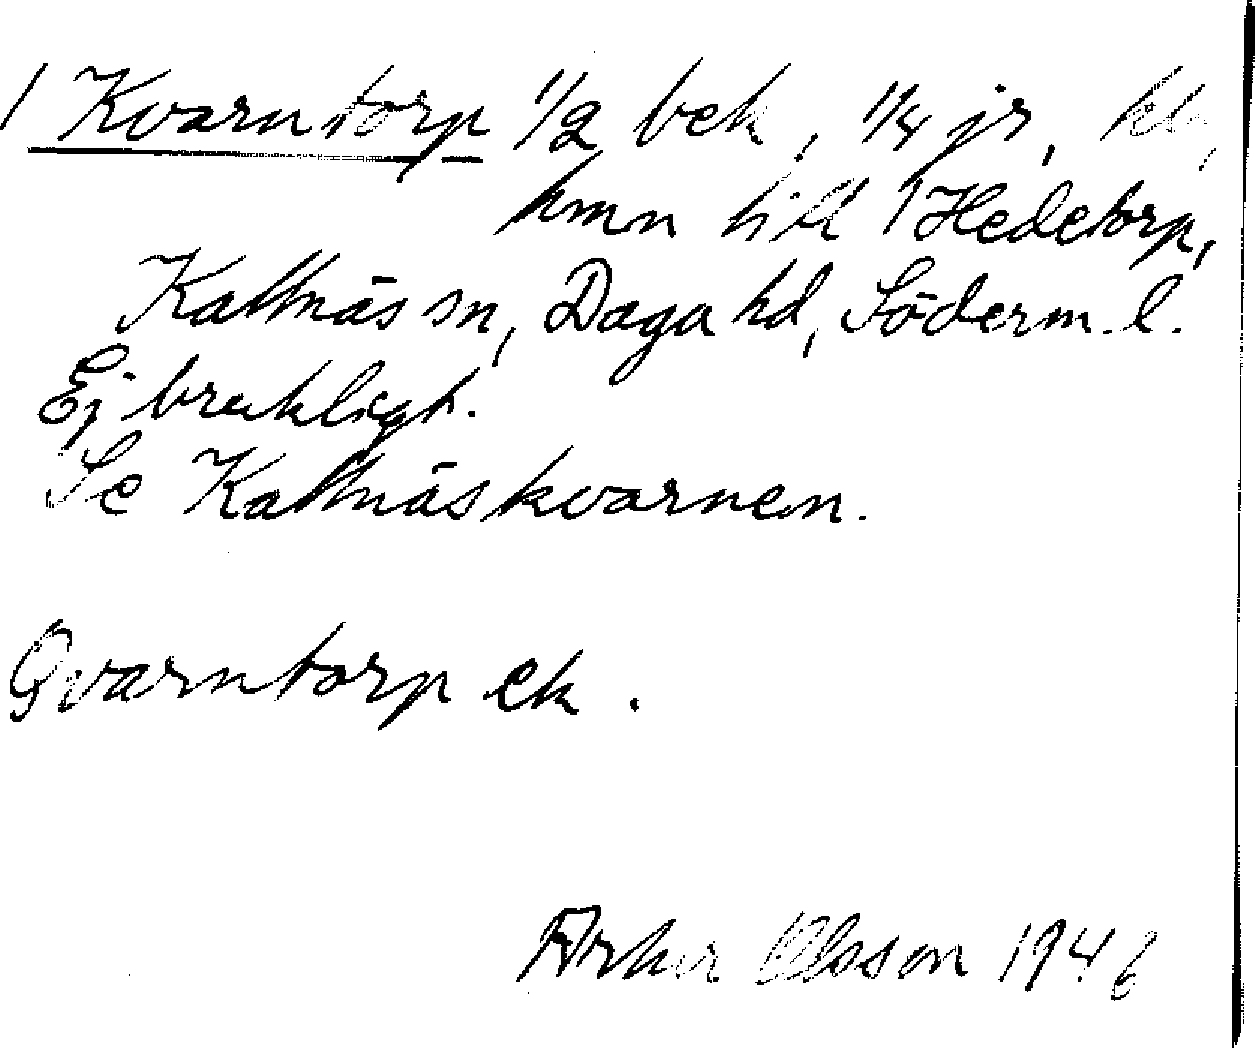 / Kvarntorp 1/2 bek, 1/4 jr, kb,
kmn till / Hedetorp,
Kattnäs sn, Daga hd, Söderm. l.
Ej brukligt.
Se Kattnäskvarnen.
Qvarntorp ek.
Arthur Olsson 1946